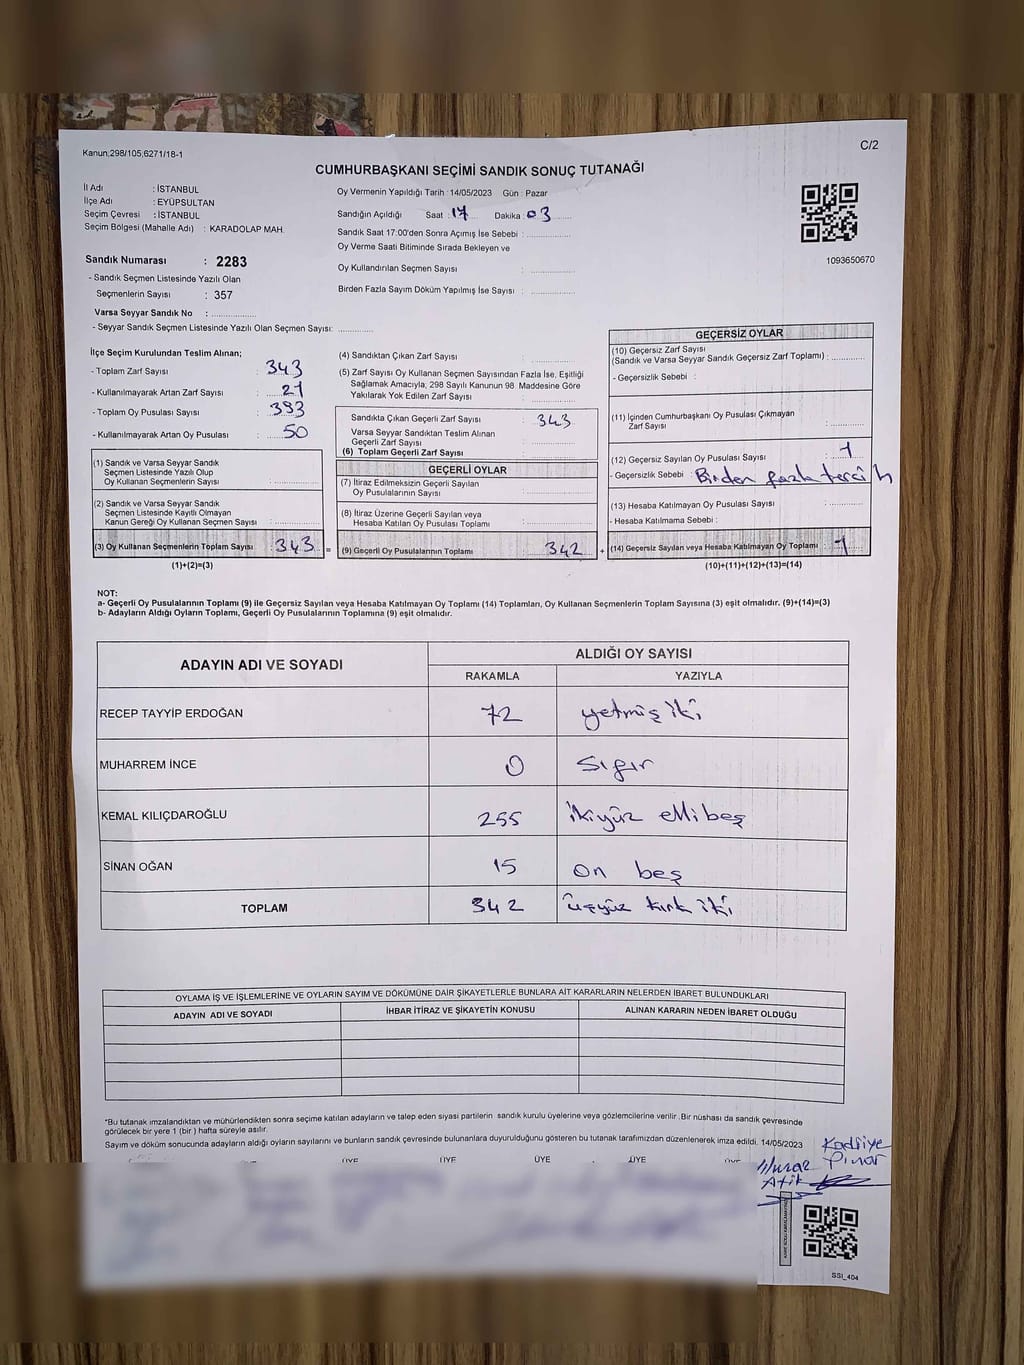 Kanun;298/105;6271/18-1
C/2
CUMHURBAŞKANI SEÇİMİ SANDIK SONUÇ TUTANAĞI
İl Adı : İSTANBUL
İlçe Adı : EYÜPSULTAN
Seçim Çevresi : İSTANBUL
Seçim Bölgesi (Mahalle Adı) : KARADOLAP MAH.
Sandık Numarası : 2283
- Sandık Seçmen Listesinde Yazılı Olan
Seçmenlerin Sayısı : 357
Varsa Seyyar Sandık No : ..............
- Seyyar Sandık Seçmen Listesinde Yazılı Olan Seçmen Sayısı: ............
Oy Vermenin Yapıldığı Tarih : 14/05/2023 Gün : Pazar
Sandığın Açıldığı Saat : 17 Dakika : 03
Sandık Saat 17:00'den Sonra Açımış İse Sebebi : ..............
Oy Verme Saati Bitiminde Sırada Bekleyen ve
Oy Kullandırılan Seçmen Sayısı : ..............
Birden Fazla Sayım Döküm Yapılmış İse Sayısı : ..............
1093650670
İlçe Seçim Kurulundan Teslim Alınan;
- Toplam Zarf Sayısı : 343
- Kullanılmayarak Artan Zarf Sayısı : 21
- Toplam Oy Pusulası Sayısı : 393
- Kullanılmayarak Artan Oy Pusulası : 50
(1) Sandık ve Varsa Seyyar Sandık
Seçmen Listesinde Yazılı Olup
Oy Kullanan Seçmenlerin Sayısı : ..............
(2) Sandık ve Varsa Seyyar Sandık
Seçmen Listesinde Kayıtlı Olmayan
Kanun Gereği Oy Kullanan Seçmen Sayısı : ..............
(3) Oy Kullanan Seçmenlerin Toplam Sayısı : 343 =
(1)+(2)=(3)
(4) Sandıktan Çıkan Zarf Sayısı : ..............
(5) Zarf Sayısı Oy Kullanan Seçmen Sayısından Fazla İse, Eşitliği
Sağlamak Amacıyla, 298 Sayılı Kanunun 98. Maddesine Göre
Yakılarak Yok Edilen Zarf Sayısı : ..............
Sandıkta Çıkan Geçerli Zarf Sayısı : 343
Varsa Seyyar Sandıktan Teslim Alınan
Geçerli Zarf Sayısı : ..............
(6) Toplam Geçerli Zarf Sayısı : ..............
GEÇERLİ OYLAR
(7) İtiraz Edilmeksizin Geçerli Sayılan
Oy Pusulalarının Sayısı : ..............
(8) İtiraz Üzerine Geçerli Sayılan veya
Hesaba Katılan Oy Pusulası Toplamı : ..............
(9) Geçerli Oy Pusulalarının Toplamı : 342 +
GEÇERSİZ OYLAR
(10) Geçersiz Zarf Sayısı
(Sandık ve Varsa Seyyar Sandık Geçersiz Zarf Toplamı) : ............
- Geçersizlik Sebebi :
(11) İçinden Cumhurbaşkanı Oy Pusulası Çıkmayan
Zarf Sayısı : ..............
(12) Geçersiz Sayılan Oy Pusulası Sayısı : 1
- Geçersizlik Sebebi : Birden fazla tercih
(13) Hesaba Katılmayan Oy Pusulası Sayısı : ..............
- Hesaba Katılmama Sebebi :
(14) Geçersiz Sayılan veya Hesaba Katılmayan Oy Toplamı : 1
(10)+(11)+(12)+(13)=(14)
NOT:
a- Geçerli Oy Pusulalarının Toplamı (9) ile Geçersiz Sayılan veya Hesaba Katılmayan Oy Toplamı (14) Toplamları, Oy Kullanan Seçmenlerin Toplam Sayısına (3) eşit olmalıdır. (9)+(14)=(3)
b- Adayların Aldığı Oyların Toplamı, Geçerli Oy Pusulalarının Toplamına (9) eşit olmalıdır.
ADAYIN ADI VE SOYADI
ALDIĞI OY SAYISI
RAKAMLA YAZIYLA
RECEP TAYYİP ERDOĞAN 72 yetmiş iki
MUHARREM İNCE 0 Sıfır
KEMAL KILIÇDAROĞLU 255 ikiyüz ellibeş
SİNAN OĞAN 15 on beş
TOPLAM 342 üçyüz kırk iki
OYLAMA İŞ VE İŞLEMLERİNE VE OYLARIN SAYIM VE DÖKÜMÜNE DAİR ŞİKAYETLERLE BUNLARA AİT KARARLARIN NELERDEN İBARET BULUNDUKLARI
ADAYIN ADI VE SOYADI İHBAR İTİRAZ VE ŞİKAYETİN KONUSU ALINAN KARARIN NEDEN İBARET OLDUĞU
*Bu tutanak imzalandıktan ve mühürlendikten sonra seçime katılan adayların ve talep eden siyasi partilerin sandık kurulu üyelerine veya gözlemcilerine verilir. Bir nüshası da sandık çevresinde
görülecek bir yere 1 (bir) hafta süreyle asılır.
Sayım ve döküm sonucunda adayların aldığı oyların sayılarını ve bunların sandık çevresinde bulunanlara duyurulduğunu gösteren bu tutanak tarafımızdan düzenlenerek imza edildi. 14/05/2023
ÜYE ÜYE ÜYE ÜYE ÜYE
Kadriye
Pınar
Atik
SSI_404